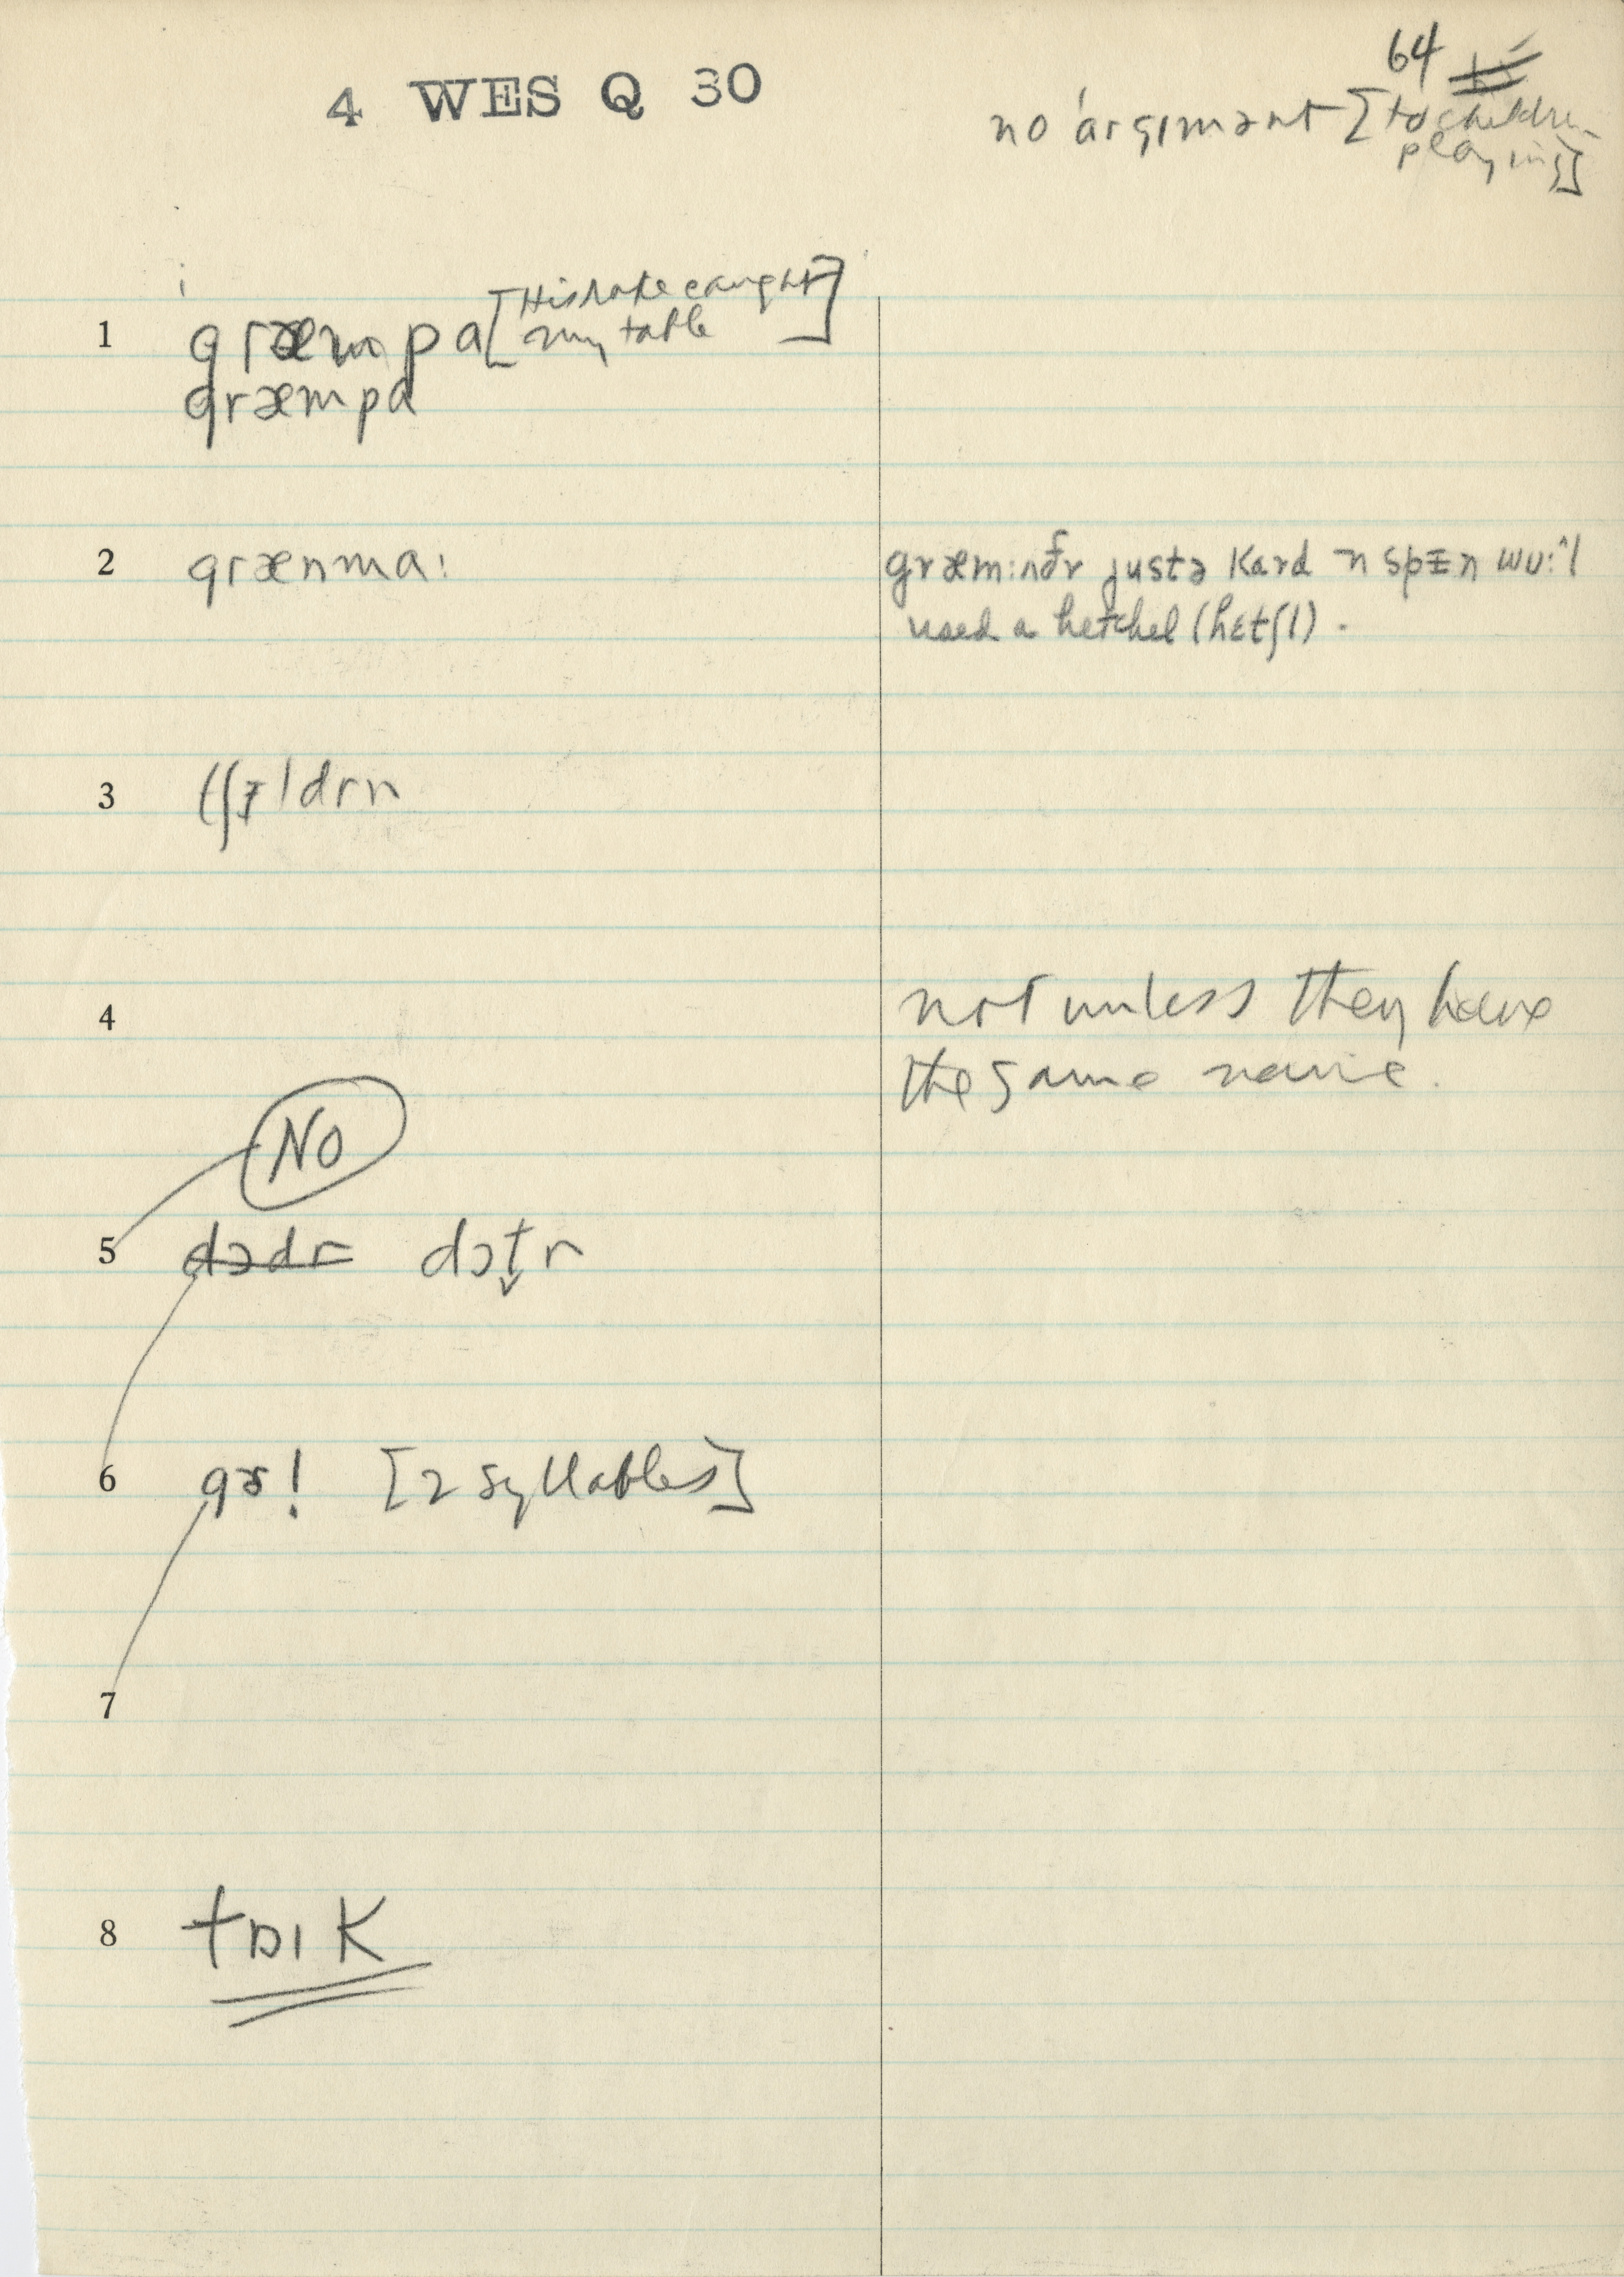 4 WES Q 30
64
no ˈargɪmənt [to children
playing]
1 græmpa [His rake caught
my table]
græmpa
2 grænma: græm:nðr justə kard n spɪn wu:^l
used a hetchel (hɛtʃl).
3 tʃɪldrn
4 not unless they have
the same name.
NO
5 dɔdr dɔt̬r
6 gɝl [2 syllables]
7
8 tɒɪk